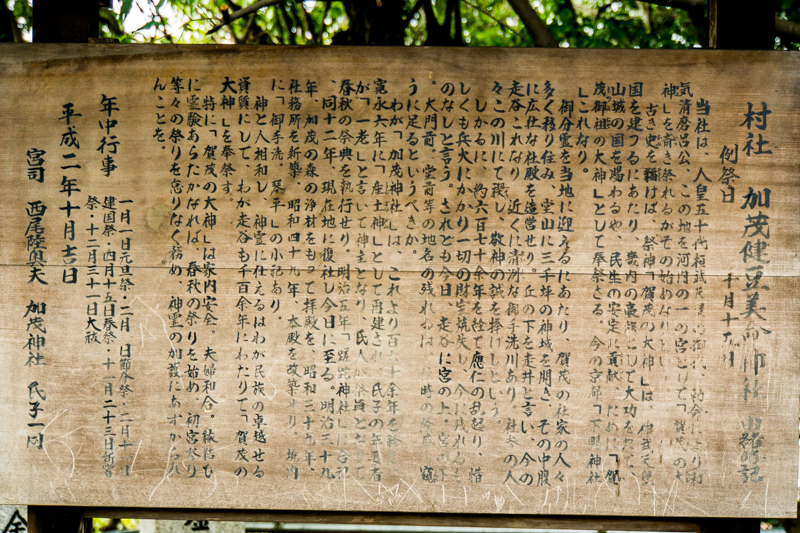 村社 加茂健豆美命神社 由緒略記
例祭日 十月十九日
当社は、人皇五十代桓武天皇の御代、勅命により和
気清磨呂公、この地を河内の一の宮として「賀茂の大
神」を斎き祭れるがその始めなり
古き史を繙けば、祭神「賀茂の大神」は、神武天皇
国を建つるにあたり、畿内の豪族として大功をたて
山城の国を賜わるや、民生の安定に貢献 ために「賀
茂御祖の大神」として奉祭さる。今の京都「下鴨神社
」これなり。
御分霊を当地に迎えるにあたり、賀茂の社家の人々
多く移り住み、堂山に三千坪の神域を開き、その中腹
に広壮な社殿を造営せり。丘の下を走井と言い、今の
走谷これなり、近くに清冽な御手洗川あり。社参の人
々この川にて禊し、敬神の誠を捧げしという。
しかるに、約六百七十余年を経て應仁の乱起り、惜
しくも兵火にかかり一切の財宝焼失し、今に残れるも
のなしと言う。されども今日、走谷に宮の上、宮の下
。大門前、堂前等の地名の残れるは 時の 窺
うに足るというべきか。
わが「加茂神社」は、これより百 十余年を経
寛永六年に「産土神」として再建され、氏子の年長者
が「一老」と言いて神主となり、氏人が祭員となりて
春秋の祭典を執行せり。明治五年「蹉跎神社」に合祀
、同十二年、現在地に復社し今日に至る。明治三十九
年、加茂の森の浄材をもって拝殿を、昭和三十九年、
社務所を新築、昭和四十九年、本殿を改築せり、境内
に「御手洗、琴平」の小祠あり。
神と人相和し、神霊に仕えるはわが民族の卓越せる
資質にして、わが走谷も千百余年にわたりて「賀茂の
大神」を奉祭す。
特に「賀茂の大神」は家内安全。夫婦和合。縁結び
に霊験あらたかなれば、春秋の祭りを始め、初宮祭り
等々の祭りを怠りなく務め、神霊の加護にあずからん
んことを。
年中行事
一月一日元旦祭・二月 日節分祭・二月十一日
建国祭・四月十五日春祭・十一月二十三日新嘗
祭・十二月三十一日大祓
平成二年十月吉日
宮司 西尾陸奥夫 加茂神社 氏子一同